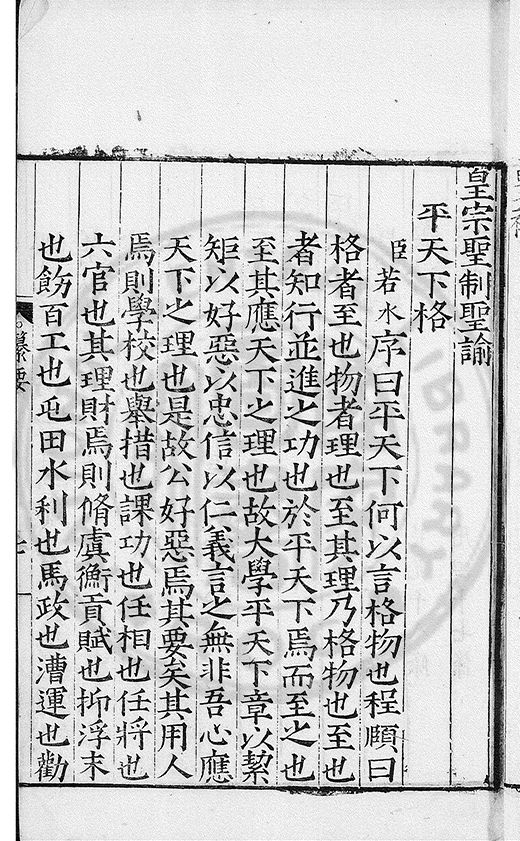 皇宗聖制聖諭
平天下格
臣若水序曰平天下何以言格物也程頥曰
格者至也物者理也至其理乃格物也至也
者知行並進之功也於平天下焉而至之也
至其應天下之理也故大學平天下章以絜
矩以好惡以忠信以仁義言之無非吾心應
天下之理也是故公好惡焉其要矣其用人
焉則學校也舉措也課功也任相也任將也
六官也其理財焉則脩虞衡貢賦也抑浮末
也飭百工也屯田水利也馬政也漕運也勸
纂要
七